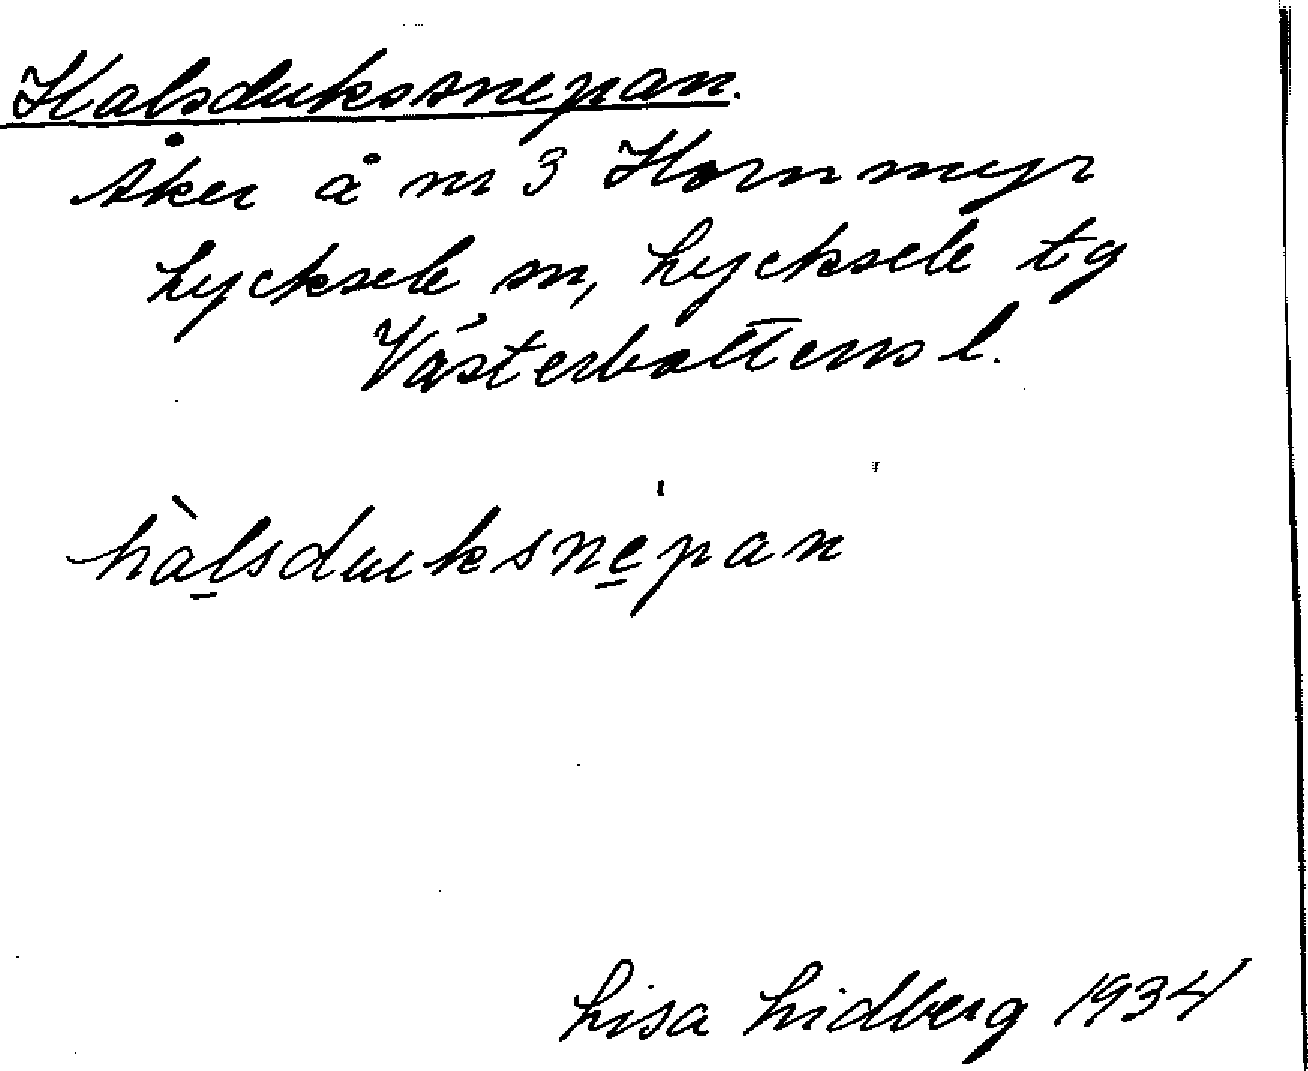 Halsdukssnepan.
åker å nr 3 Hornmyr
Lycksele sn, Lycksele tg
Västerbottens l.
hàl̠sduksne̠pan
Lisa Lidberg 1934